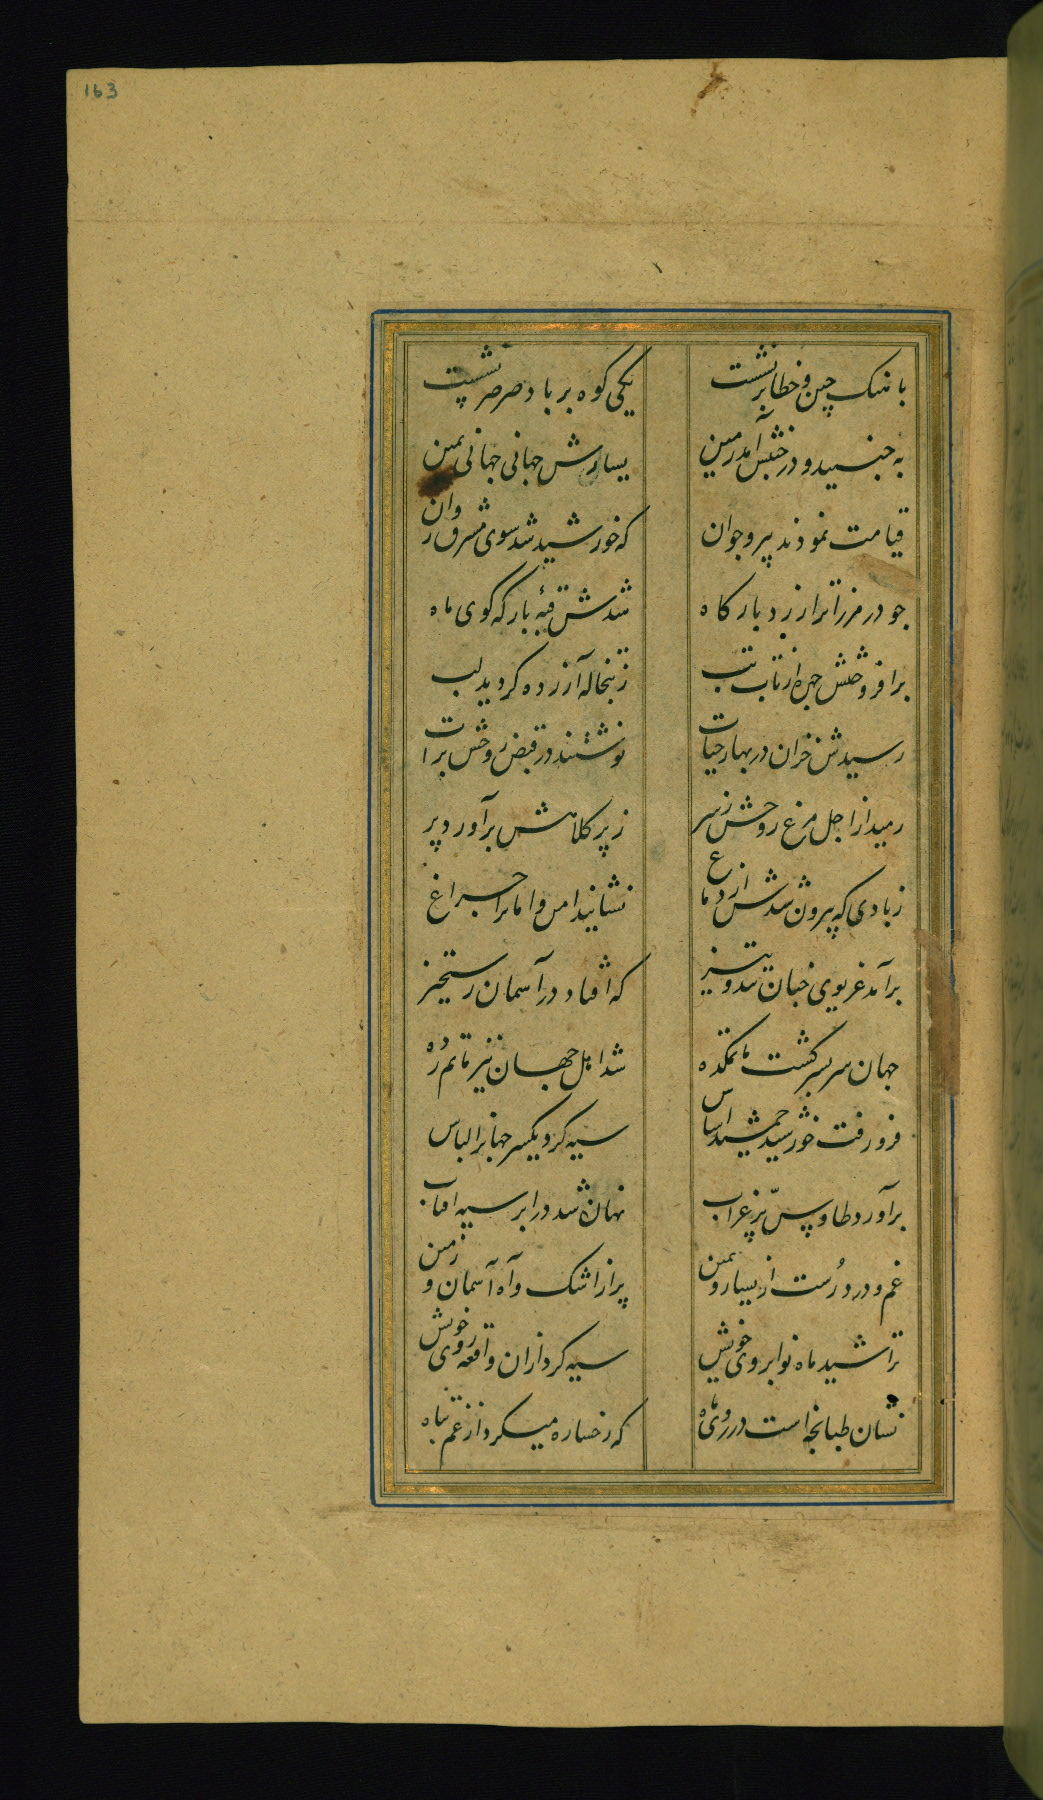 163
باهنک چین و خطا برنشست یکی کوه بر باد صرصر نشست
به جنبید و در جنبش آمد زمین یسارش جهانی جهانی یمین
قیامت نمودند پیر و جوان که خورشید شد سوی مشرق روان
چو در مرز اترار زد بارکاه شدش قبه بارکه کوی ماه
برافروختش چهره از تاب تب ز تبخاله آزرده کردید لب
رسیدش خزان در بهار حیات نوشتند در قبض روحش برات
رمید از اجل مرغ روحش ز سر ز پر کلاهش برآورد پر
ز بادی که بیرون شدش از دماغ نشانید امن و امانرا چراغ
برآمد غریوی چنان تند و تیز که افتاد در آسمان رستخیز
جهان سر بسر کشت ماتمکده شد اهل جهان نیز ماتم زده
فرو رفت خورشید جمشید اساس سیه کرد یکسر جهانرا لباس
برآورد طاوس پر غراب نهان شد در ابر سیه افتاب
غم و درد رست از یسار و یمین پر از اشک و آه آسمان و زمین
تراشید ماه نو ابروی خویش سیه کرد ازان واقعه روی خویش
نشان طبانچه است در روی ماه که رخساره میکرد از غم تباه